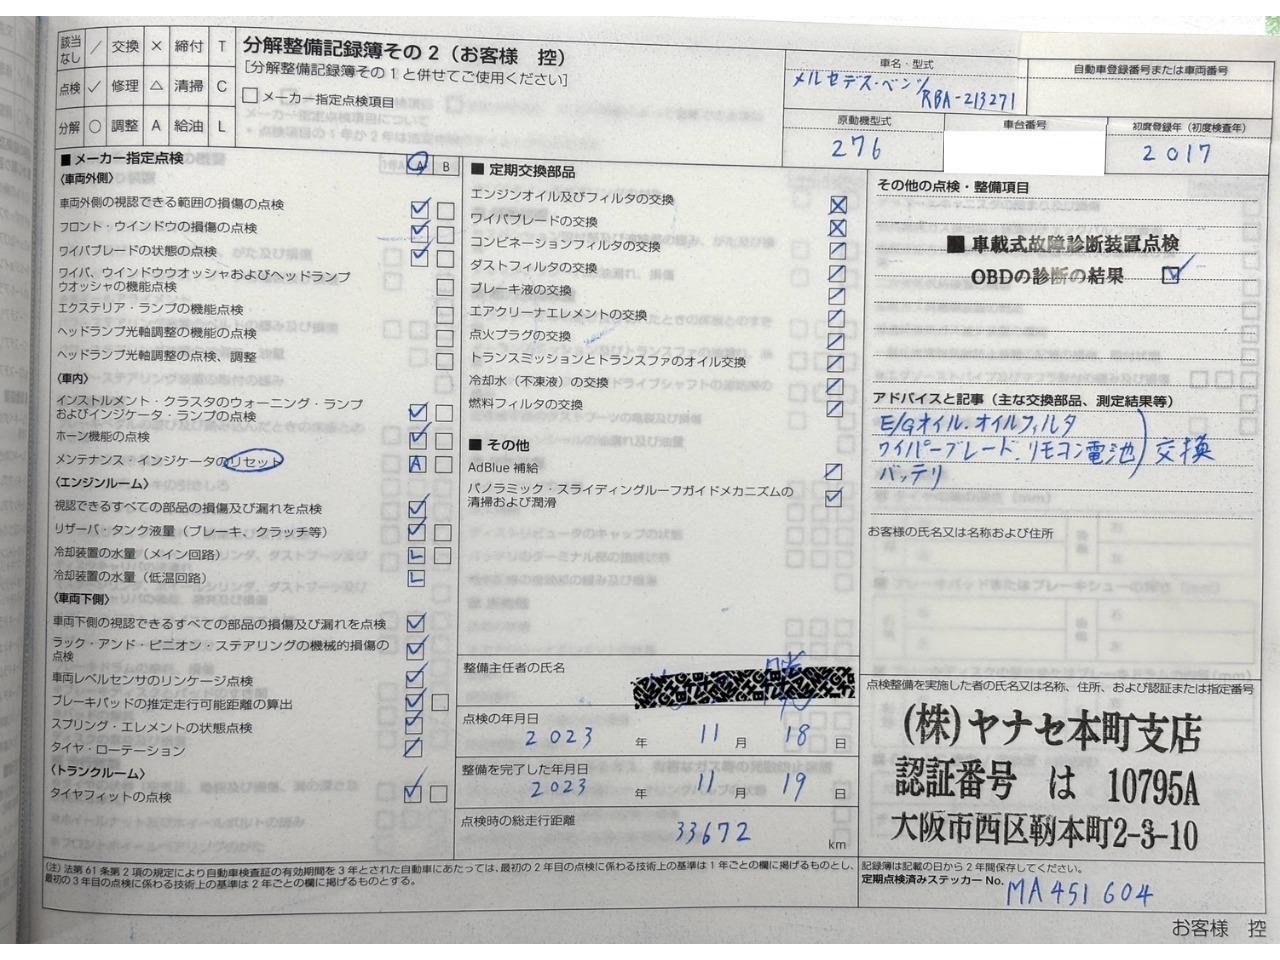 該当なし ／ 交換 × 締付 T
点検 ✓ 修理 △ 清掃 C
分解 ○ 調整 A 給油 L
分解整備記録簿その2（お客様　控）
[分解整備記録簿その1と併せてご使用ください]
□ メーカー指定点検項目
車名・型式
メルセデス・ベンツ/RBA-213271
自動車登録番号または車両番号
原動機型式
276
車台番号
初度登録年（初度検査年）
2017
■ メーカー指定点検
A B
〈車両外側〉
車両外側の視認できる範囲の損傷の点検 ✓
フロント・ウインドウの損傷の点検 ✓
ワイパブレードの状態の点検 ✓
ワイパ、ウインドウウオッシャおよびヘッドランプ
ウオッシャの機能点検
エクステリア・ランプの機能点検
ヘッドランプ光軸調整の機能の点検
ヘッドランプ光軸調整の点検、調整
〈車内〉
インストルメント・クラスタのウォーニング・ランプ
およびインジケータ・ランプの点検 ✓
ホーン機能の点検 ✓
メンテナンス・インジケータのリセット A
〈エンジンルーム〉
視認できるすべての部品の損傷及び漏れを点検 ✓
リザーバ・タンク液量（ブレーキ、クラッチ等） ✓
冷却装置の水量（メイン回路） L
冷却装置の水量（低温回路） L
〈車両下側〉
車両下側の視認できるすべての部品の損傷及び漏れを点検 ✓
ラック・アンド・ピニオン・ステアリングの機械的損傷の
点検 ✓
車両レベルセンサのリンケージ点検 ✓
ブレーキパッドの推定走行可能距離の算出 ✓
スプリング・エレメントの状態点検 ✓
タイヤ・ローテーション ／
〈トランクルーム〉
タイヤフィットの点検 ✓
■ 定期交換部品
エンジンオイル及びフィルタの交換 ×
ワイパブレードの交換 ×
コンビネーションフィルタの交換 ／
ダストフィルタの交換 ／
ブレーキ液の交換 ／
エアクリーナエレメントの交換 ／
点火プラグの交換 ／
トランスミッションとトランスファのオイル交換 ／
冷却水（不凍液）の交換 ／
燃料フィルタの交換 ／
■ その他
AdBlue 補給 ／
パノラミック・スライディングルーフガイドメカニズムの
清掃および潤滑 ✓
整備主任者の氏名
点検の年月日
2023 年 11 月 18 日
整備を完了した年月日
2023 年 11 月 19 日
点検時の総走行距離
33672 km
その他の点検・整備項目
■ 車載式故障診断装置点検
OBDの診断の結果 ✓
アドバイスと記事（主な交換部品、測定結果等）
E/Gオイル.オイルフィルタ
ワイパーブレード.リモコン電池 ) 交換
バッテリ
お客様の氏名又は名称および住所
点検整備を実施した者の氏名又は名称、住所、および認証または指定番号
(株)ヤナセ本町支店
認証番号 は 10795A
大阪市西区靭本町2-3-10
(注) 法第61条第2項の規定により自動車検査証の有効期間を3年とされた自動車にあたっては、最初の2年目の点検に係わる技術上の基準は1年ごとの欄に掲げるものとし、
最初の3年目の点検に係わる技術上の基準は2年ごとの欄に掲げるものとする。
記録簿は記載の日から2年間保存してください。
定期点検済みステッカーNo. MA451604
お客様　控